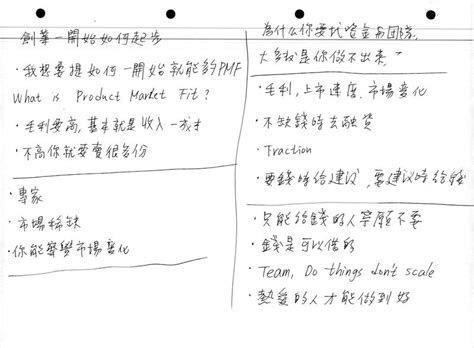 創業一開始如何起步
・我想要提如何一開始就能夠PMF
What is Product Market Fit?
・毛利要高,基本就是收入-成本
・不高你就要賣很多份
・專家
・市場稀缺
・你能察覺市場變化
為什麼你要找資金與團隊,
大多就是你做不出來?
・毛利,上市速度,市場變化
・不缺錢時去融資
・Traction
・要錢時給建議,要建議時給錢
・只能給錢的人寧願不要
・錢是可以借的
・Team, Do things don't scale
・熱愛的人才能做到好